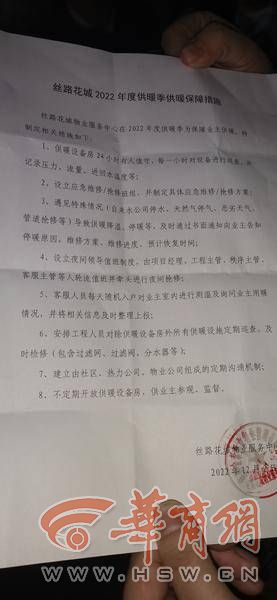 丝路花城 2022 年度供暖季供暖保障措施
丝路花城物业服务中心在 2022 年度供暖季为保障业主供暖，特
制定相关措施如下：
1、供暖设备房 24 小时有人值守，每一小时对设备进行巡查，并
记录压力、流量、进回水温度等；
2、设立应急维修/抢修班组，并制定具体应急维修/抢修方案；
3、遇见特殊情况（自来水公司停水、天然气停气、恶劣天气、
管道抢修等）导致供暖降温、停暖等，及时通过书面通知向业主告知
停暖原因、维修方案、维修进度、预计恢复时间；
4、设立夜间领导值班制度，由项目经理、工程主管、秩序主管、
客服主管等人轮流值班并牵头进行夜间抢修；
5、客服人员每天随机入户对业主室内进行测温及询问业主用暖
情况，并将相关信息及时整理上报；
6、安排工程人员对除供暖设备房外所有供暖设施定期巡查、及
时检修（包含过滤网、过滤阀、分水器等）；
7、建立由社区、热力公司、物业公司组成的定期沟通机制；
8、不定期开放供暖设备房，供业主参观、监督。
丝路花城物业服务中心
2022 年 12 月
华商网
WWW.HSW.CN